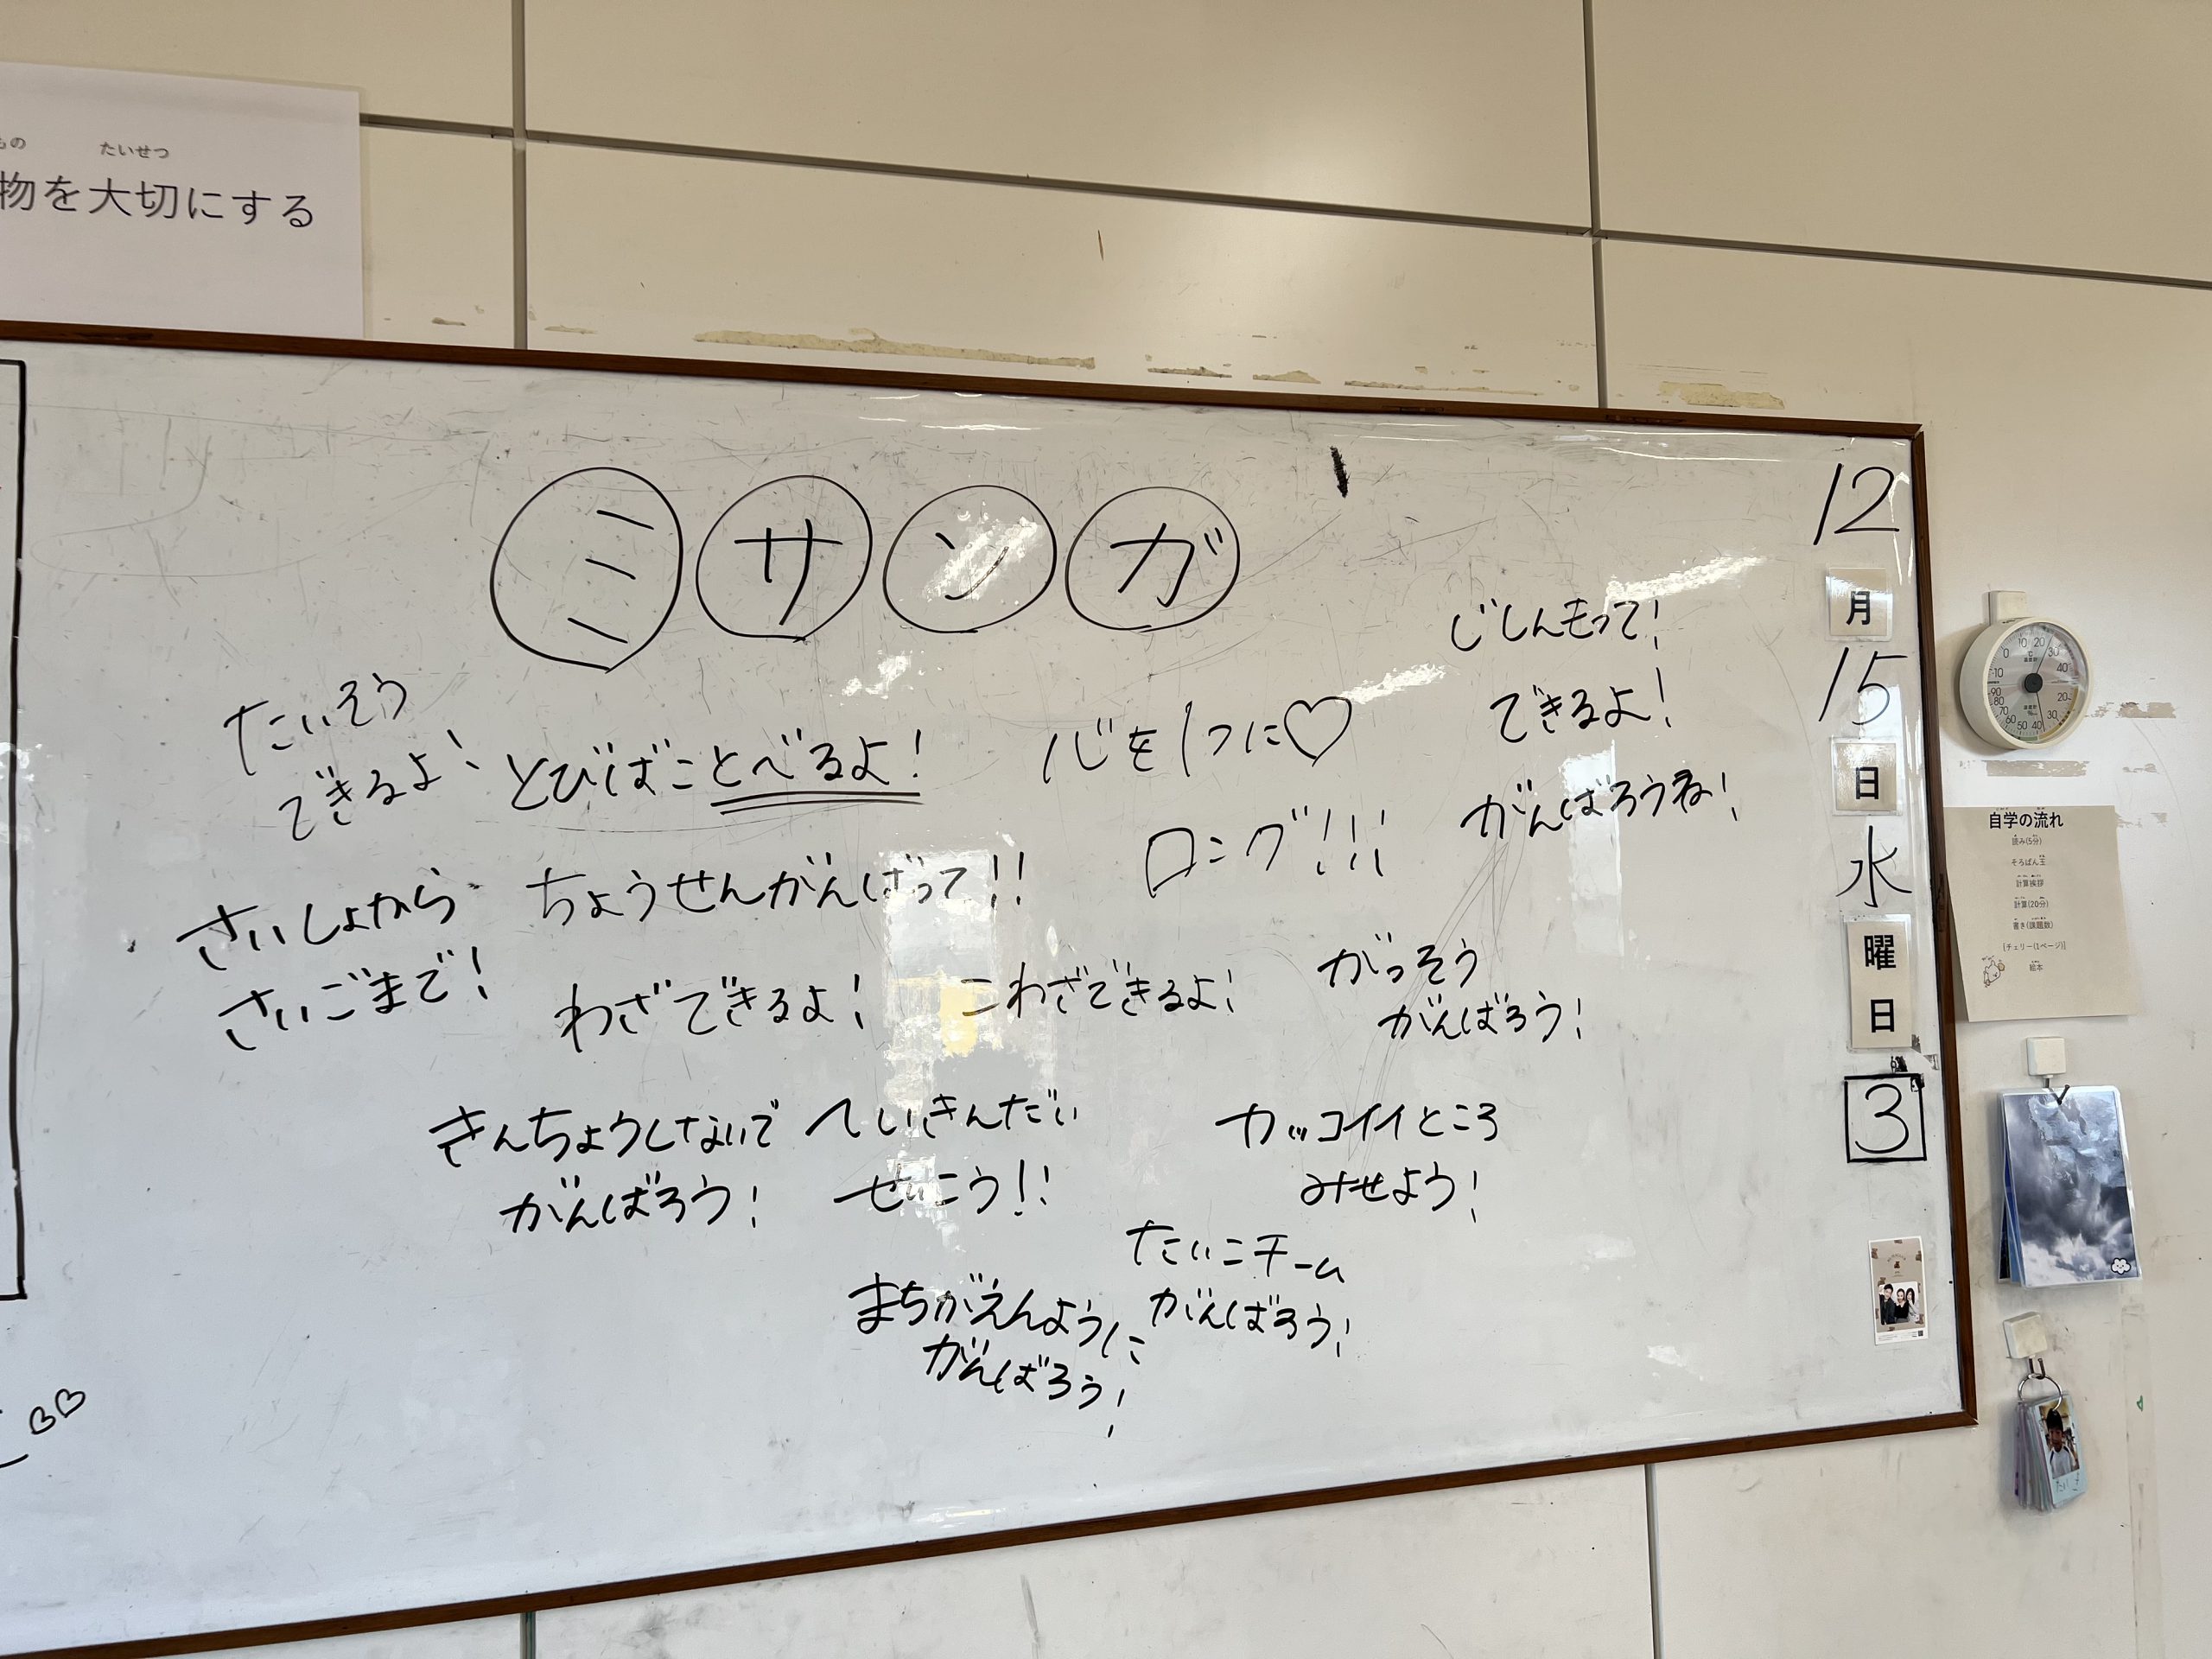 もの たいせつ
物を大切にする
ミサンガ
たいそう
できるよ!
とびばことべるよ!
心を1つに♡
じしんもって!
できるよ!
がんばろうね!
ロング!!!
さいしょから
さいごまで!
ちょうせんがんばって!!
わざできるよ!
こわざできるよ!
がっそう
がんばろう!
きんちょうしないで
がんばろう!
へいきんだい
せいこう!!
カッコイイところ
みせよう!
たいこチーム
がんばろう!
まちがえんように
がんばろう!
12
月
15
日
水
曜
日
3
自学の流れ
読み(5分)
そろばん玉
計算挨拶
計算(20分)
書き(課題数)
[チェリー(1ページ)]
絵本